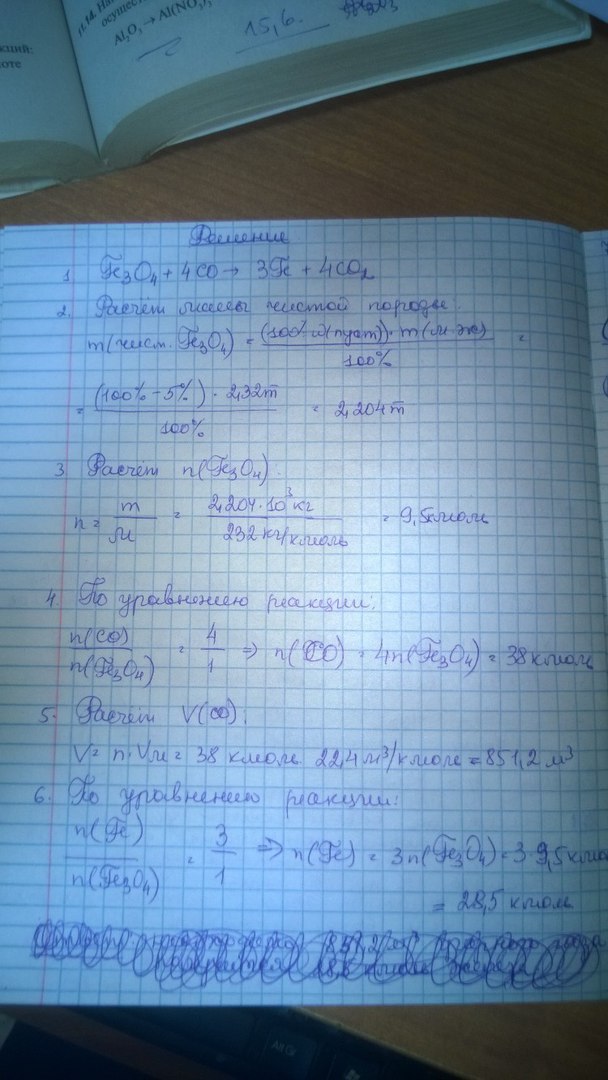 кций:
оте
11.14. На
осущес
Al₂O₃ → Al(NO₃)₃
15,6.
Решение
1. Fe₃O₄ + 4CO → 3Fe + 4CO₂
2. Расчёт массы чистой породы:
m(чист. Fe₃O₄) = (100% - ω(пуст)) · m(м-ж) / 100% =
= (100% - 5%) · 2,32т / 100% = 2,204т
3. Расчёт n(Fe₃O₄).
n = m / M = 2,204 · 10³ кг / 232 кг/кмоль = 9,5кмоль
4. По уравнению реакции:
n(CO) / n(Fe₃O₄) = 4 / 1 ⇒ n(CO) = 4n(Fe₃O₄) = 38 кмоль
5. Расчёт V(CO):
V = n · Vм = 38 кмоль · 22,4 м³/кмоль = 851,2 м³
6. По уравнению реакции:
n(Fe) / n(Fe₃O₄) = 3 / 1 ⇒ n(Fe) = 3n(Fe₃O₄) = 3 · 9,5 кмол
= 28,5 кмоль
Alt Gr